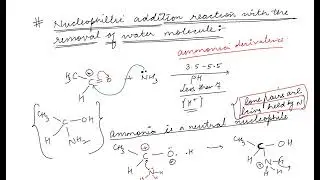 # Nucleophilic addition reaction with the
removal of water molecule:-
ammonia derivatives
H3C
C = O + NH3
H
3.5-5.5
PH
Less than 7
[H+]
lone pairs are
held by N
CH3 OH
C
H NH2
Ammonia is a neutral nucleophile
CH3 O H
C
H N H
H H
CH3 OH
C
H N-H
H